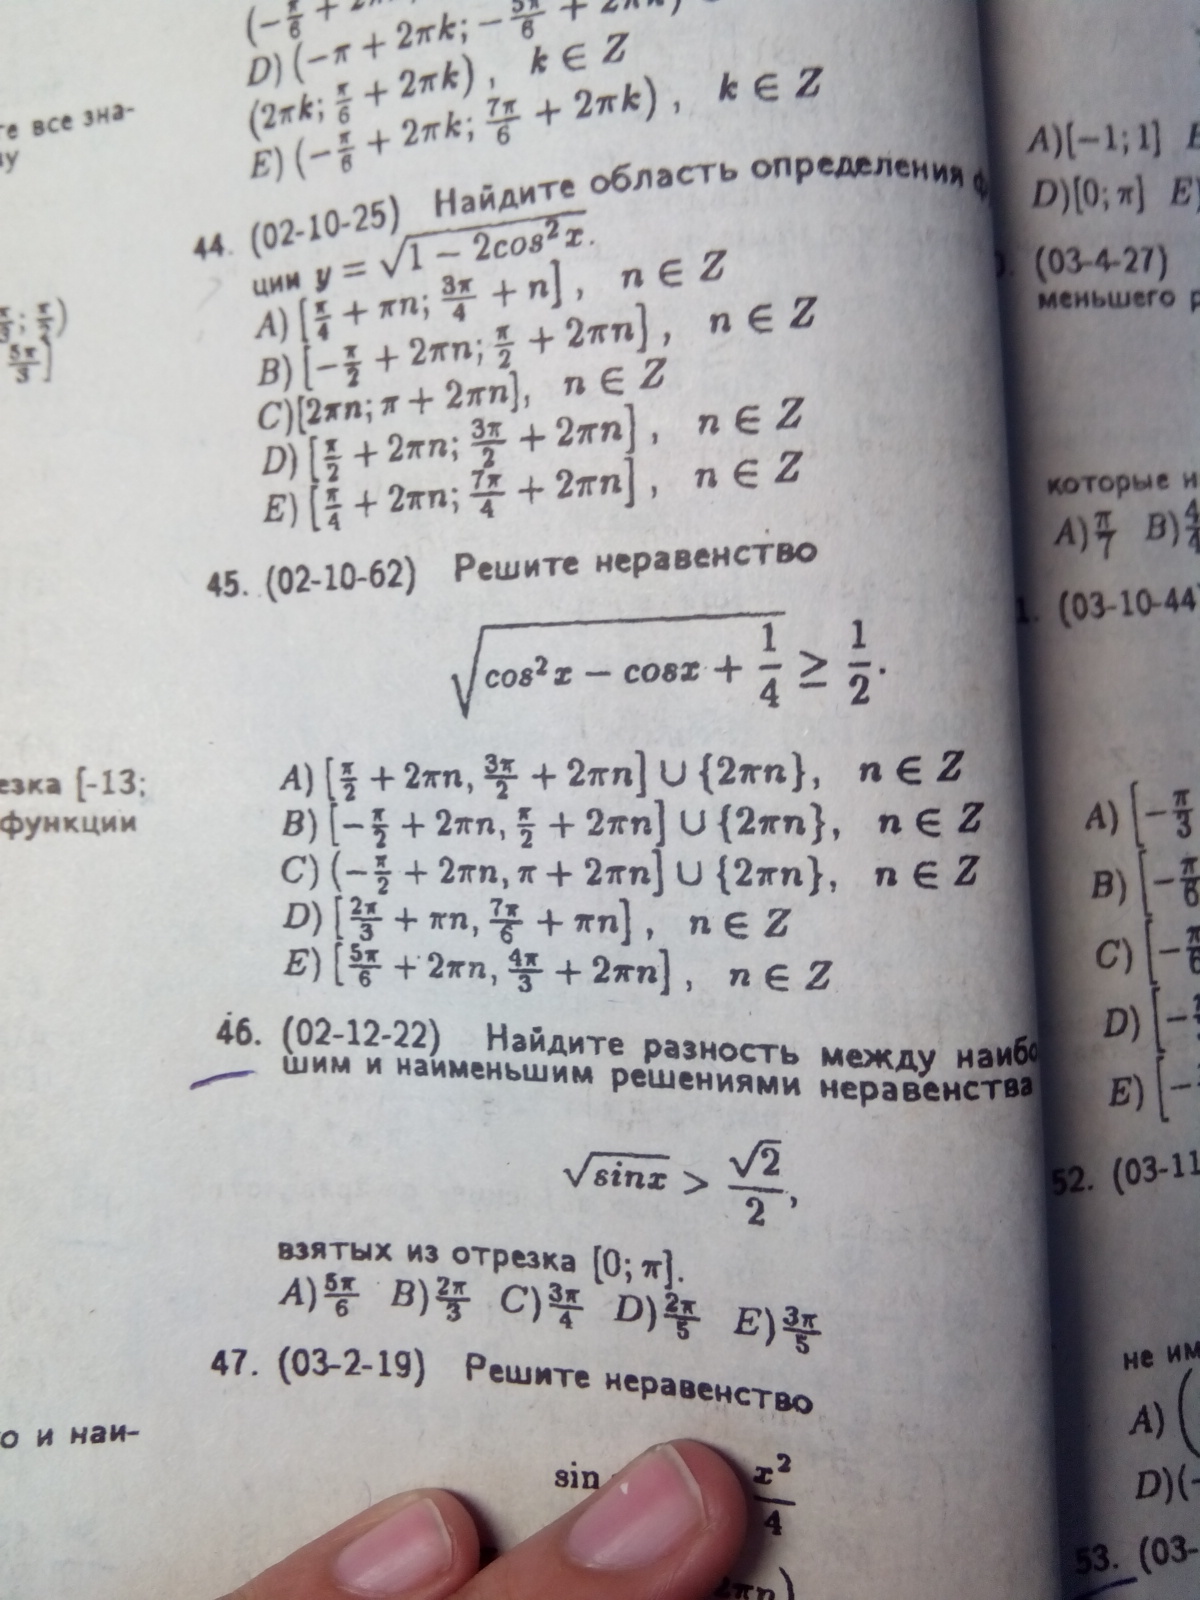 D) (−π + 2πk; −5π/6 + 2πk)
(2πk; π/6 + 2πk), k ∈ Z
E) (−π/6 + 2πk; 7π/6 + 2πk), k ∈ Z
44. (02-10-25) Найдите область определения
ции y = √(1 − 2cos²x).
A) [π/4 + πn; 3π/4 + n], n ∈ Z
B) [−π/2 + 2πn; π/2 + 2πn], n ∈ Z
C) [2πn; π + 2πn], n ∈ Z
D) [π/2 + 2πn; 3π/2 + 2πn], n ∈ Z
E) [π/4 + 2πn; 7π/4 + 2πn], n ∈ Z
45. (02-10-62) Решите неравенство
√(cos²x − cosx + 1/4) ≥ 1/2.
A) [π/2 + 2πn, 3π/2 + 2πn] ∪ {2πn}, n ∈ Z
B) [−π/2 + 2πn, π/2 + 2πn] ∪ {2πn}, n ∈ Z
C) (−π/2 + 2πn, π + 2πn] ∪ {2πn}, n ∈ Z
D) [2π/3 + πn, 7π/6 + πn], n ∈ Z
E) [5π/6 + 2πn, 4π/3 + 2πn], n ∈ Z
46. (02-12-22) Найдите разность между наибо
шим и наименьшим решениями неравенства
√sinx > √2/2,
взятых из отрезка [0; π].
A) 5π/6 B) 2π/3 C) 3π/4 D) 2π/5 E) 3π/5
47. (03-2-19) Решите неравенство
sin x²/4
все зна-
5π/3]
[-13;
функции
и наи-
A)[−1; 1]
D)[0; π] E)
(03-4-27)
меньшего
которые
A) π/7 B)
(03-10-44)
A) [−π/3
B) [−π/6
C) [−π/6
D) [−
E) [−
52. (03-11
не им
A) (
D) (−
53. (03-